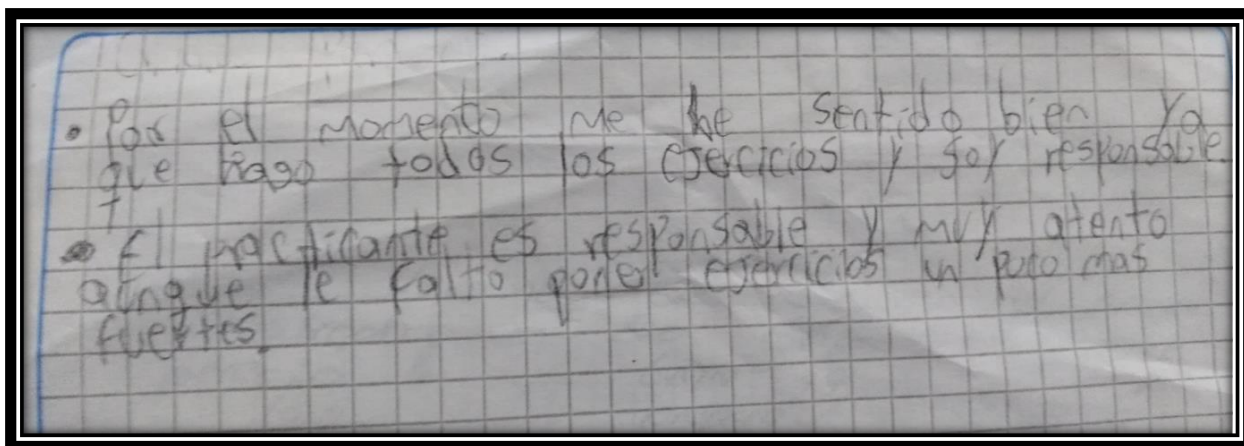 • Por el momento me he sentido bien ya
que hago todos los ejercicios y soy responsable.
• El practicante es responsable y muy atento
aunque le falto poner ejercicios un poco mas
fuertes.